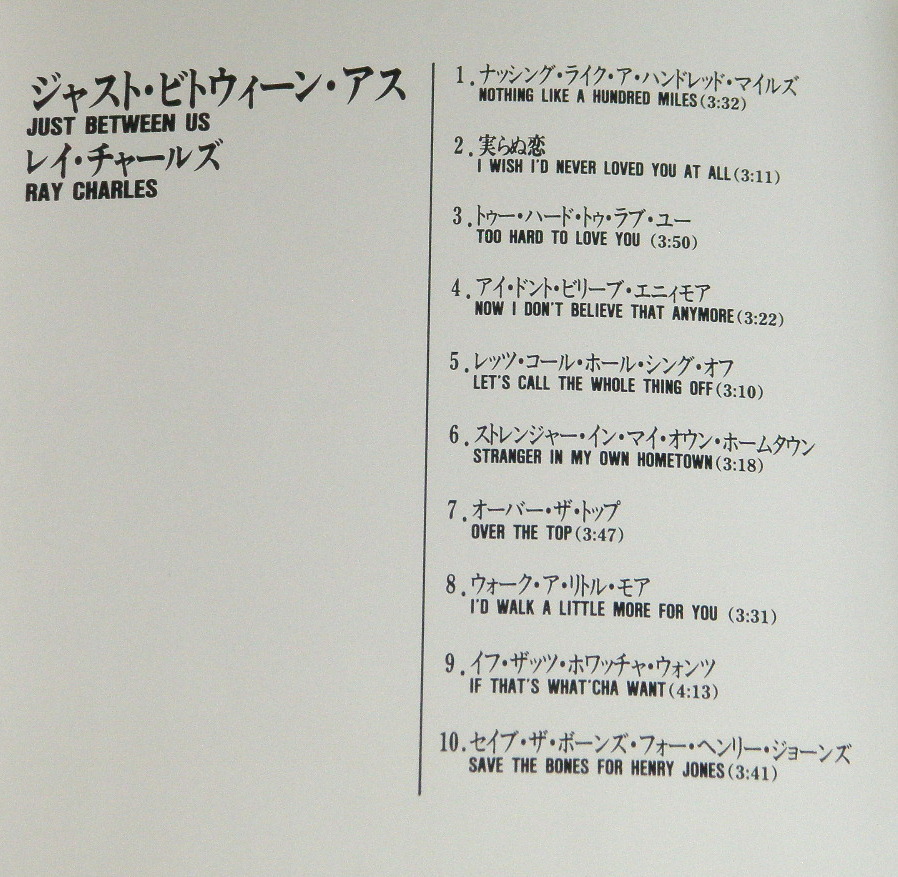 ジャスト・ビトウィーン・アス
JUST BETWEEN US
レイ・チャールズ
RAY CHARLES
1.ナッシング・ライク・ア・ハンドレッド・マイルズ
NOTHING LIKE A HUNDRED MILES(3:32)
2.実らぬ恋
I WISH I'D NEVER LOVED YOU AT ALL(3:11)
3.トゥー・ハード・トゥ・ラブ・ユー
TOO HARD TO LOVE YOU (3:50)
4.アイ・ドント・ビリーブ・エニィモア
NOW I DON'T BELIEVE THAT ANYMORE(3:22)
5.レッツ・コール・ホール・シング・オフ
LET'S CALL THE WHOLE THING OFF(3:10)
6.ストレンジャー・イン・マイ・オウン・ホームタウン
STRANGER IN MY OWN HOMETOWN(3:18)
7.オーバー・ザ・トップ
OVER THE TOP(3:47)
8.ウォーク・ア・リトル・モア
I'D WALK A LITTLE MORE FOR YOU (3:31)
9.イフ・ザッツ・ホワッチャ・ウォンツ
IF THAT'S WHAT'CHA WANT(4:13)
10.セイブ・ザ・ボーンズ・フォー・ヘンリー・ジョーンズ
SAVE THE BONES FOR HENRY JONES(3:41)